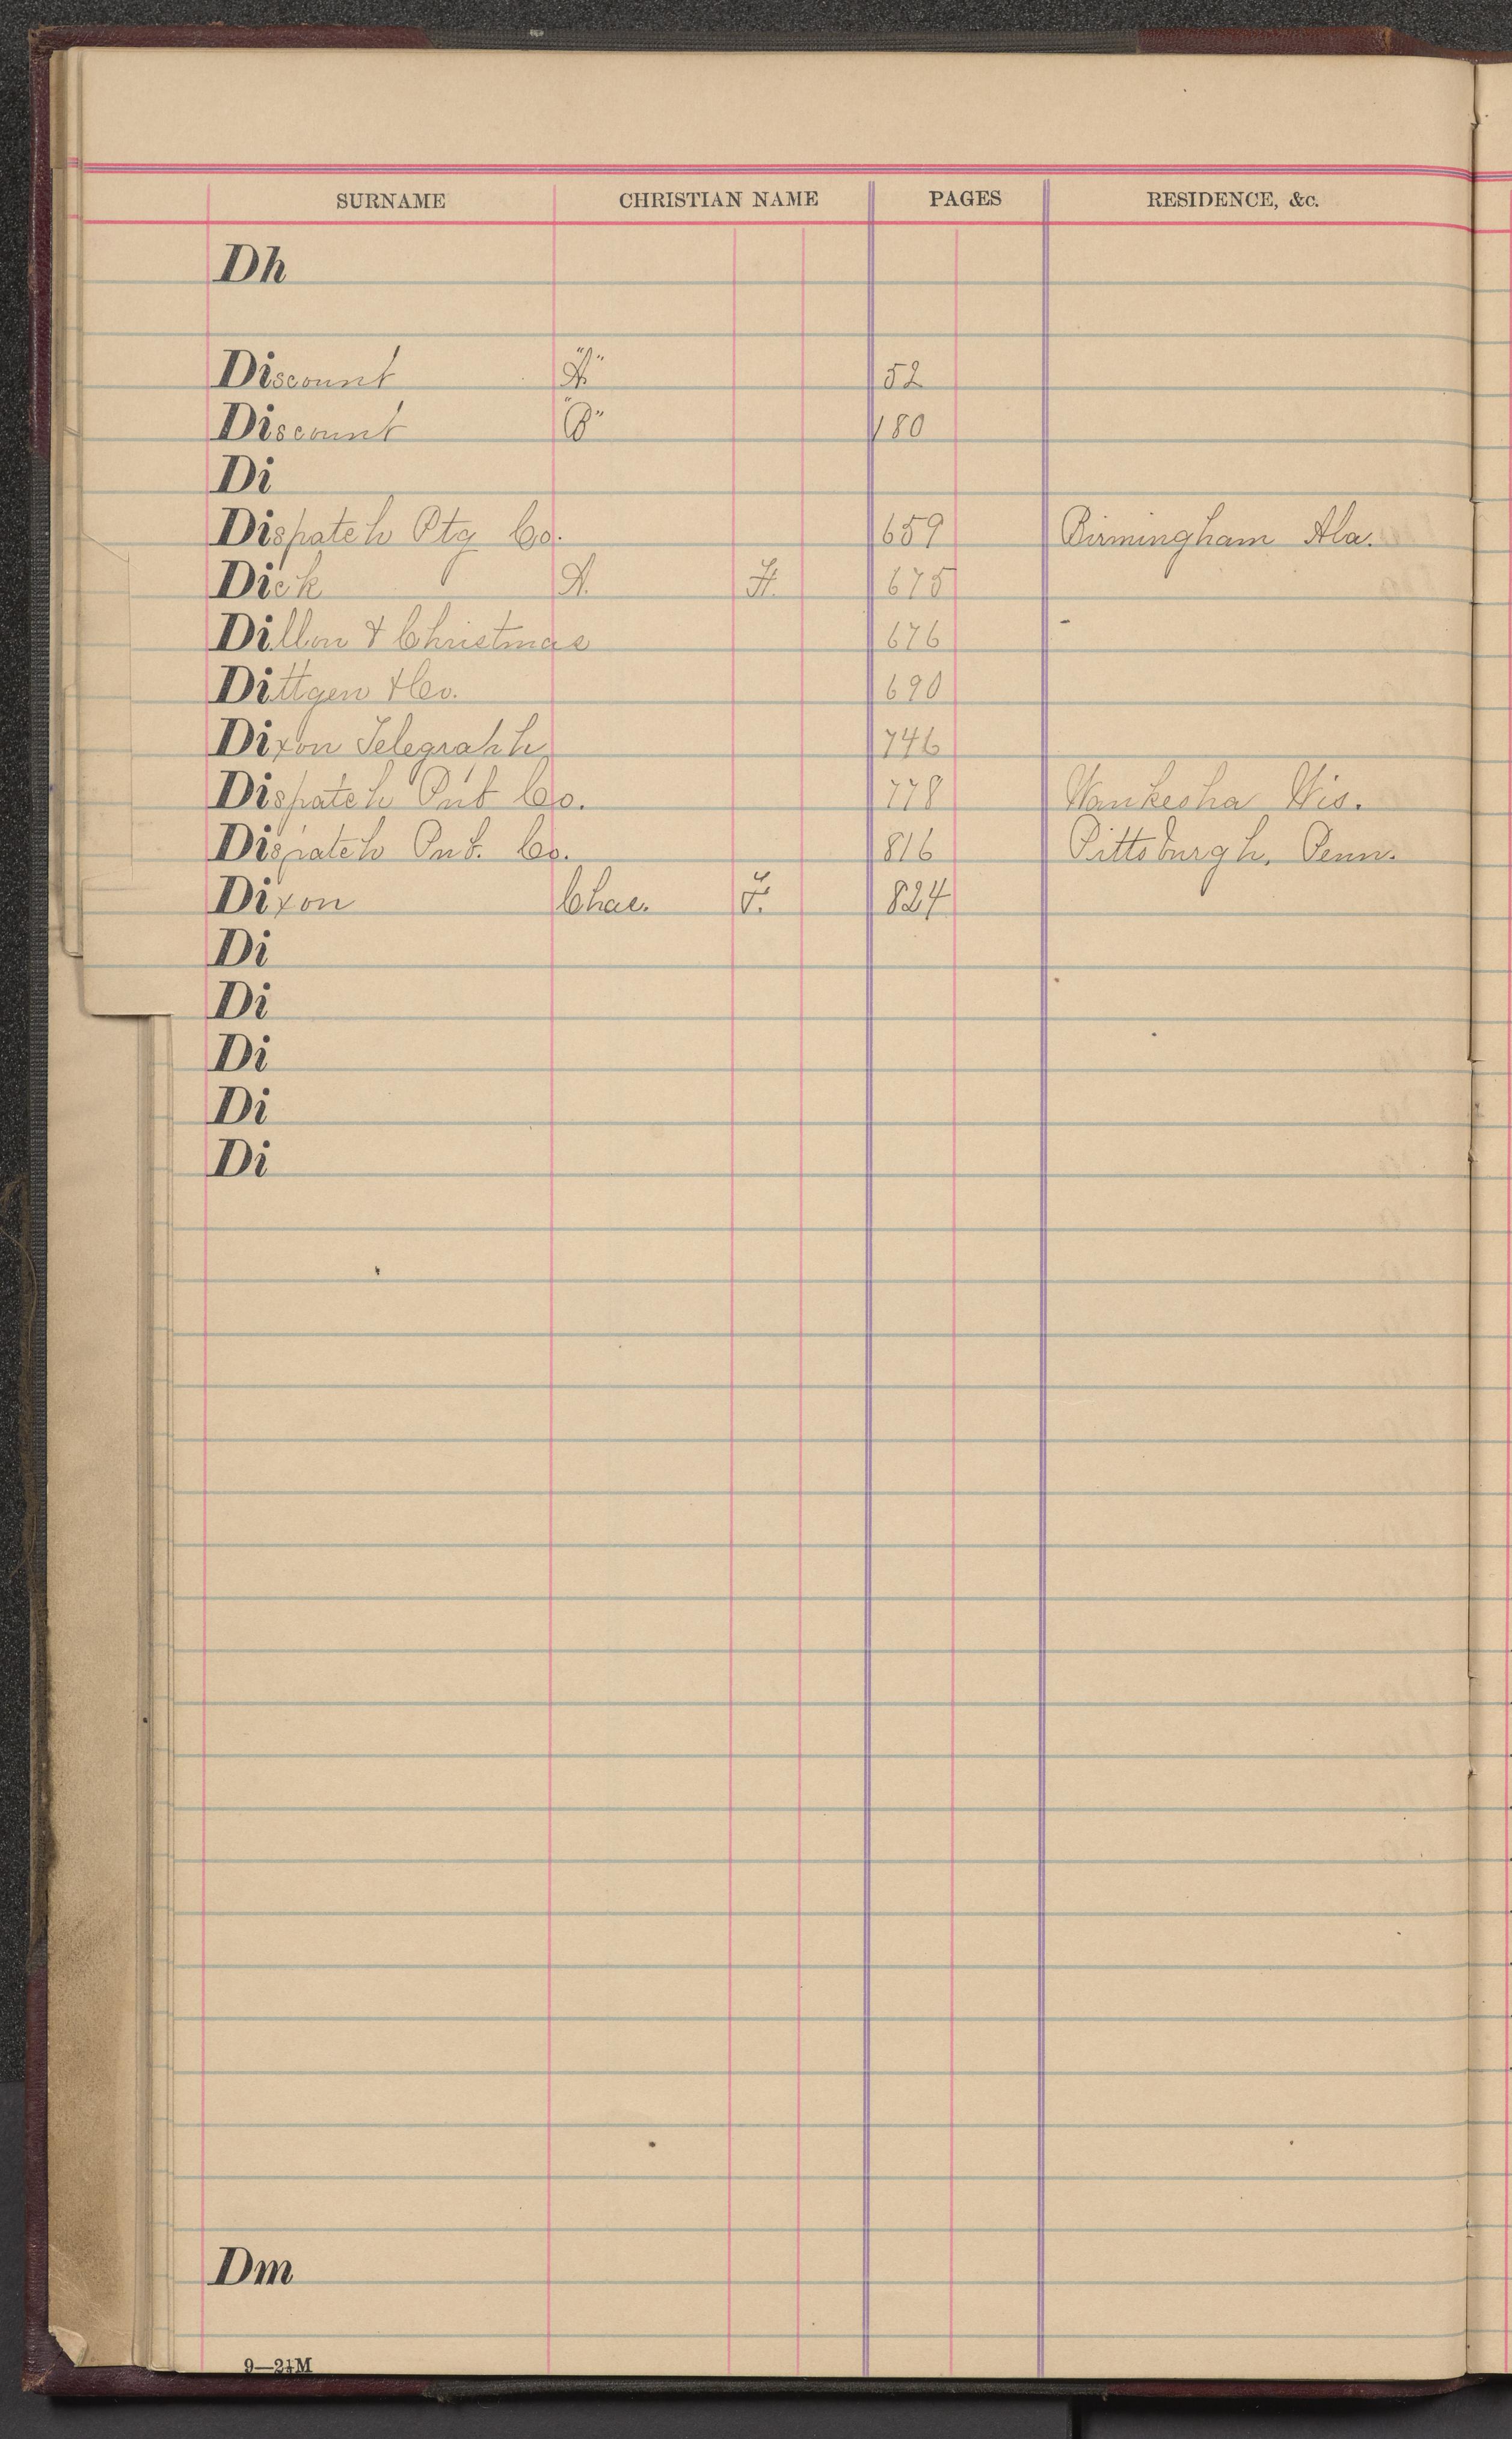 SURNAME CHRISTIAN NAME PAGES RESIDENCE, &c.
Dh
Discount "A" 52
Discount "B" 180
Di
Dispatch Ptg Co. 659 Birmingham Ala.
Dick A. H. 675
Dillon & Christmas 676
Dittgen & Co. 690
Dixon Telegraph 746
Dispatch Pub Co. 778 Waukesha Wis.
Dispatch Pub. Co. 816 Pittsburgh, Penn.
Dixon Chas. F. 824
Di
Di
Di
Di
Di
Dm
9—21M